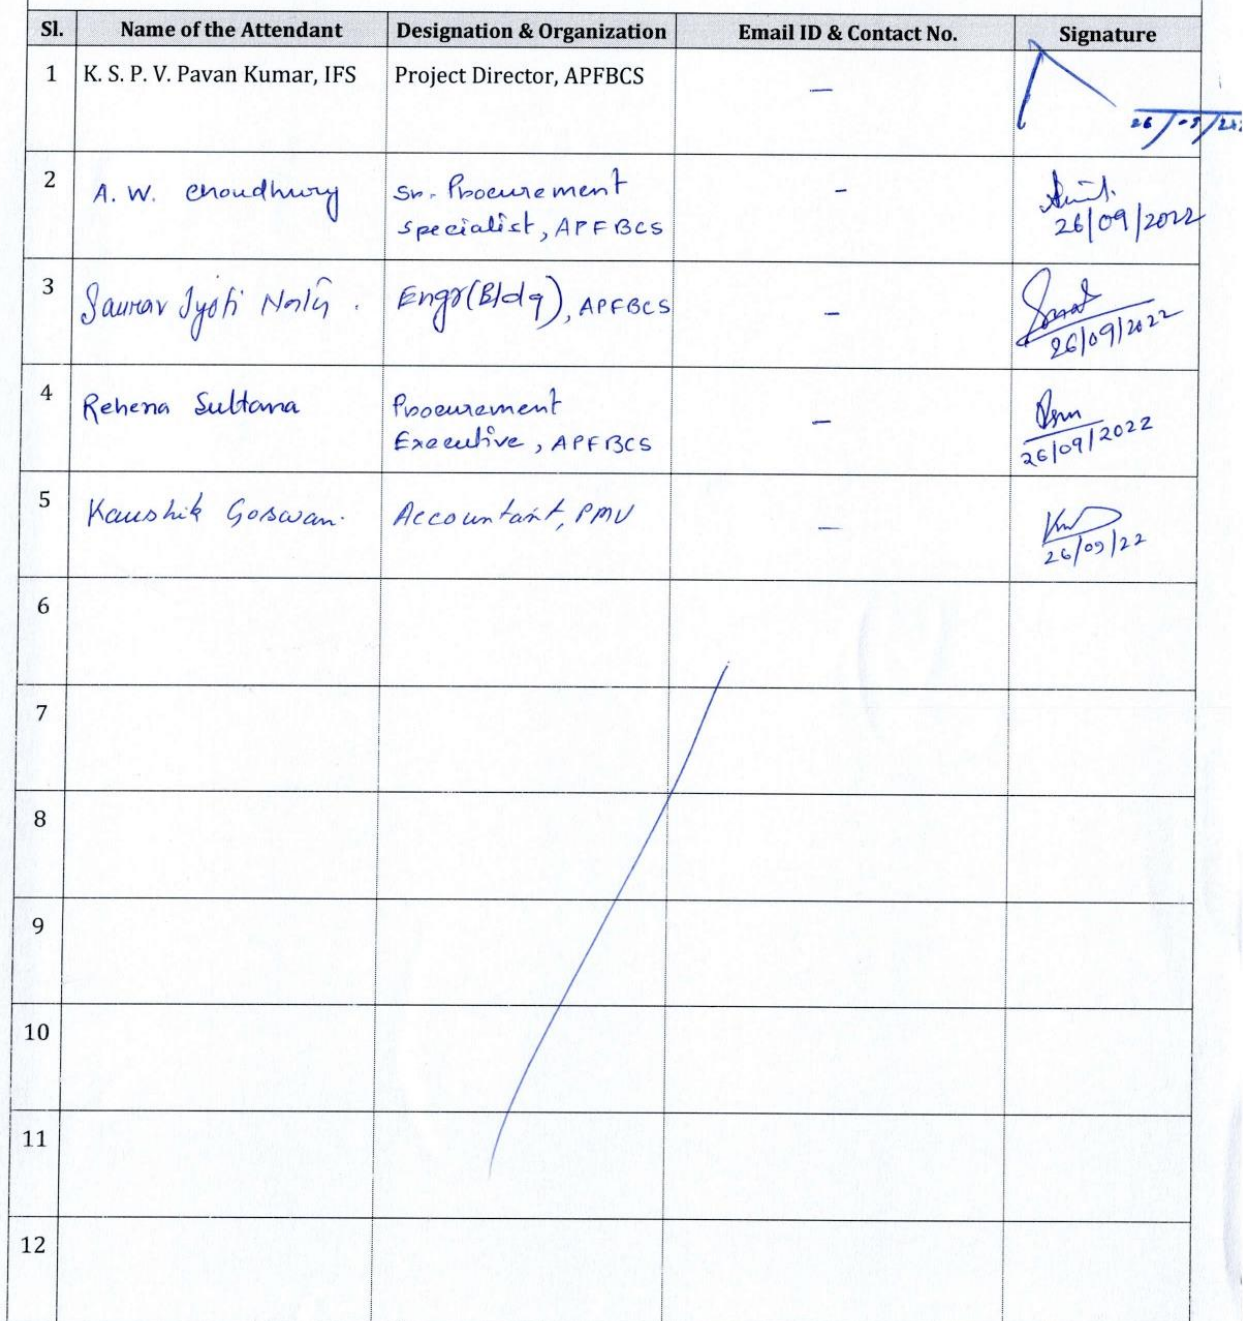 Sl. Name of the Attendant Designation & Organization Email ID & Contact No. Signature
1 K. S. P. V. Pavan Kumar, IFS Project Director, APFBCS —
2 A. W. Choudhury Sr. Procurement
Specialist, APFBCS -
26/09/2022
3 Saurav Jyoti Engr(Bldg), APFBCS -
26/09/2022
4 Rehena Sultana Procurement
Executive, APFBCS -
26/09/2022
5 Kaushik Goswan. Accountant, PMU —
26/09/22
6
7
8
9
10
11
12